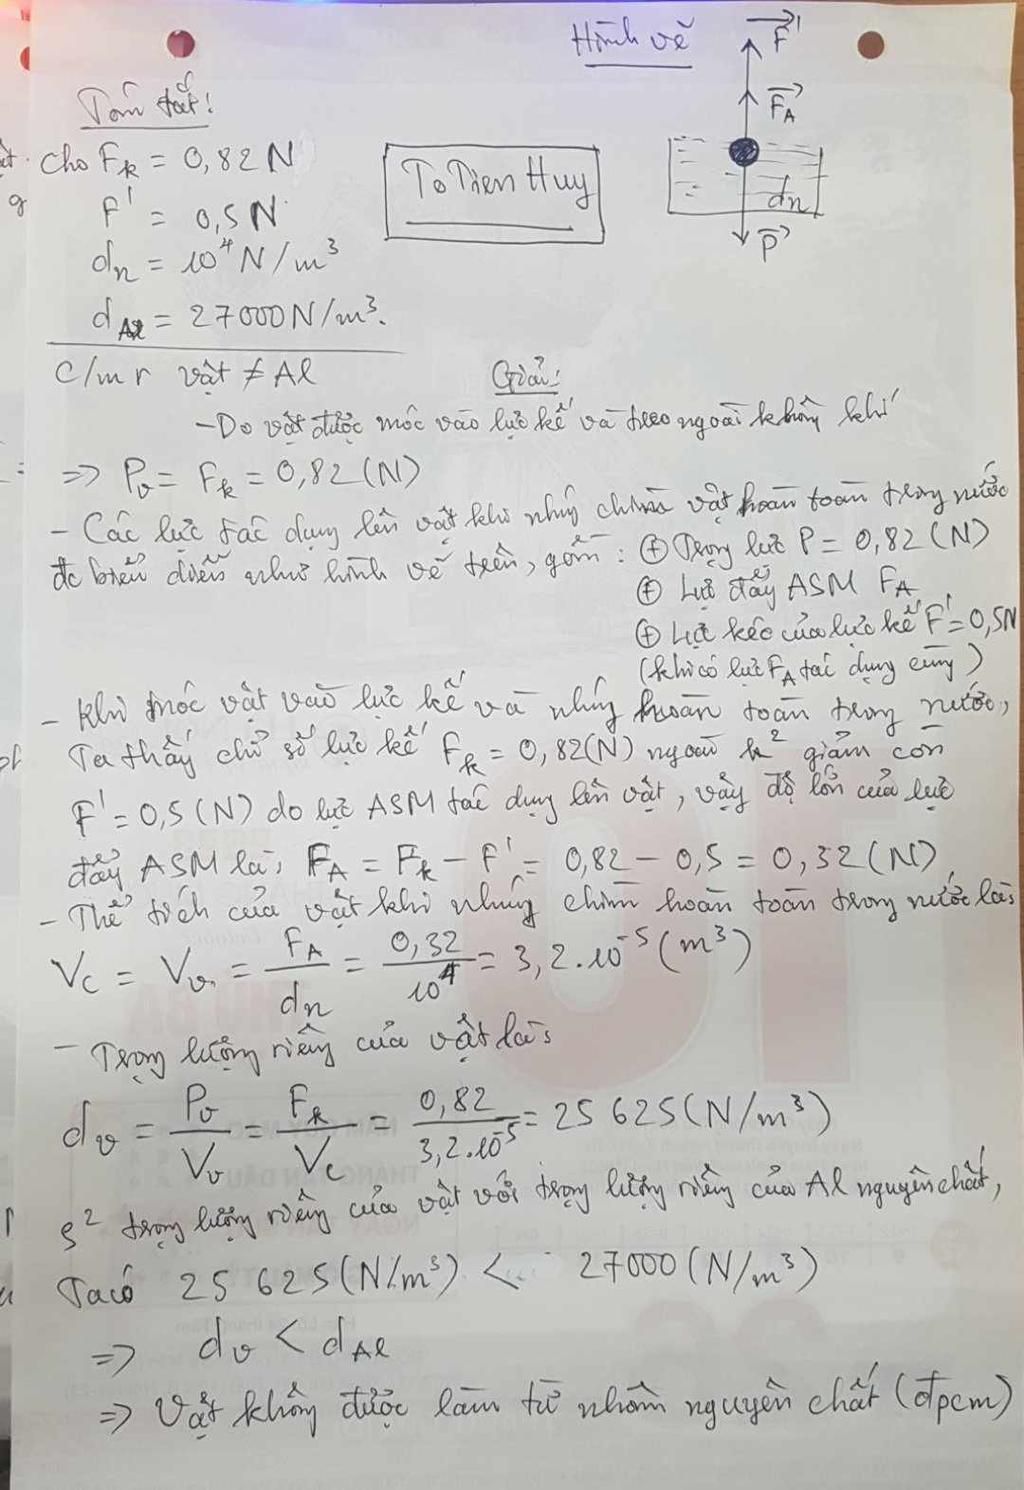 Hình vẽ
F'
F_A
dn
P
Tóm tắt:
cho Fk = 0,82N
F' = 0,5N
dn = 10⁴N/m³
dAl = 27000N/m³.
To Tien Huy
C/m r vật ≠ Al
Giải:
- Do vật được móc vào lực kế và treo ngoài không khí
=> Pv = Fk = 0,82(N)
- Các lực tác dụng lên vật khi nhúng chìm vật hoàn toàn trong nước
đc biểu diễn như hình vẽ trên, gồm: ⊕ Trọng lực P = 0,82(N)
⊕ Lực đẩy ASM FA
⊕ Lực kéo của lực kế F' = 0,5N
(khi có lực FA tác dụng cùng)
- Khi móc vật vào lực kế và nhúng hoàn toàn trong nước,
Ta thấy chỉ số lực kế Fk = 0,82(N) ngoài k² giảm còn
F' = 0,5(N) do lực ASM tác dụng lên vật, vậy độ lớn của lực
đẩy ASM là: FA = Fk - F' = 0,82 - 0,5 = 0,32(N)
- Thể tích của vật khi nhúng chìm hoàn toàn trong nước là:
Vc = Vv = FA/dn = 0,32/10⁴ = 3,2.10⁻⁵(m³)
- Trọng lượng riêng của vật là:
dv = Pv/Vv = Fk/Vc = 0,82/3,2.10⁻⁵ = 25 625(N/m³)
S² trọng lượng riêng của vật với trọng lượng riêng của Al nguyên chất,
Ta có 25 625(N/m³) < 27000(N/m³)
=> dv < dAl
=> Vật không được làm từ nhôm nguyên chất (đpcm)